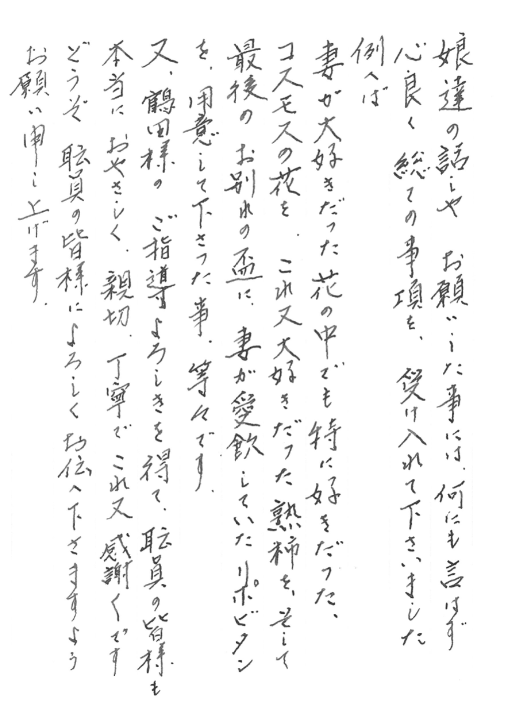 娘達の話しや お願いした事には、何にも言はず
心良く総ての事項を、受け入れて下さいました
例へば
妻が大好きだった花の中でも特に好きだった、
コスモスの花を、これ又大好きだった熟柿を、そして
最後のお別れの盃に、妻が愛飲していたリポビタン
を、用意して下さった事、等々です。
又、鶴田様の ご指導よろしきを得て、職員の皆様も
本当に おやさしく、親切、丁寧で これ又 感謝々です
どうぞ 職員の皆様によろしく お伝へ下さますよう
お願い申し上げます。